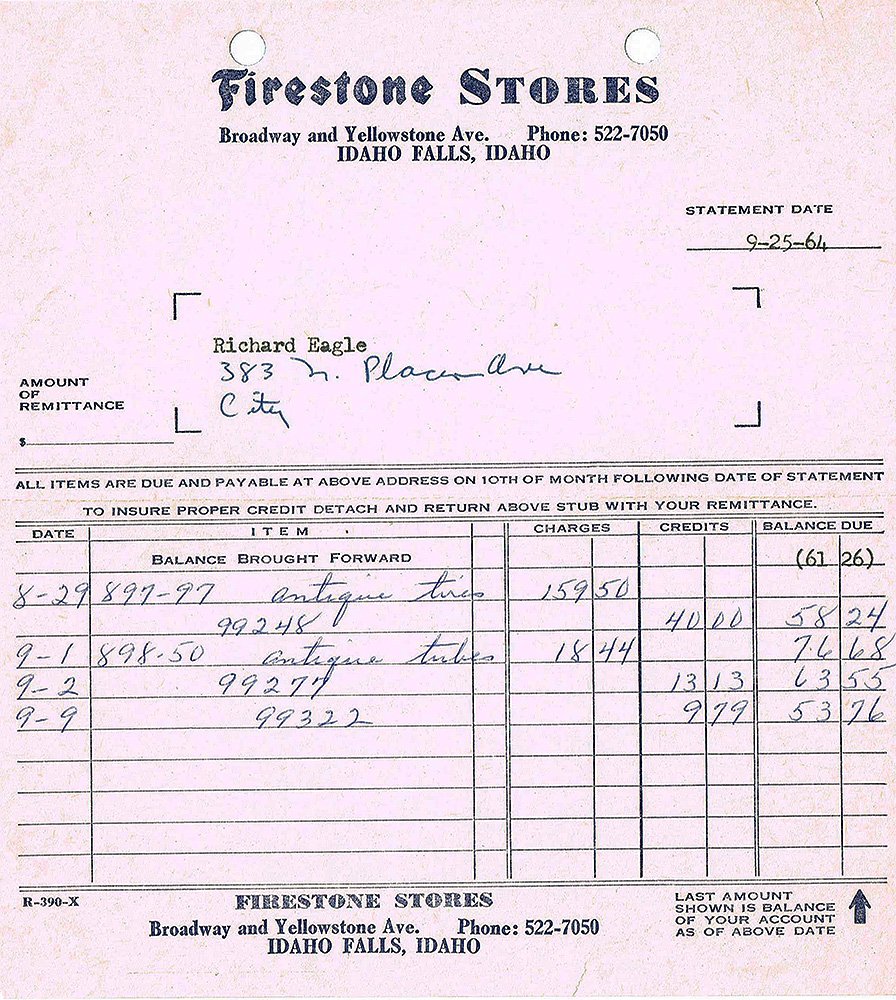 Firestone STORES
Broadway and Yellowstone Ave. Phone: 522-7050
IDAHO FALLS, IDAHO
STATEMENT DATE
9-25-64
Richard Eagle
383 N. Placer Ave
City
AMOUNT
OF
REMITTANCE
$
ALL ITEMS ARE DUE AND PAYABLE AT ABOVE ADDRESS ON 10TH OF MONTH FOLLOWING DATE OF STATEMENT
TO INSURE PROPER CREDIT DETACH AND RETURN ABOVE STUB WITH YOUR REMITTANCE.
DATE ITEM CHARGES CREDITS BALANCE DUE
BALANCE BROUGHT FORWARD (61 26)
8-29 897-97 antique tires 159 50
99248 40 00 58 24
9-1 898-50 antique tubes 18 44 76 68
9-2 99277 13 13 63 55
9-9 99322 9 79 53 76
R-390-X
FIRESTONE STORES
Broadway and Yellowstone Ave. Phone: 522-7050
IDAHO FALLS, IDAHO
LAST AMOUNT
SHOWN IS BALANCE
OF YOUR ACCOUNT
AS OF ABOVE DATE